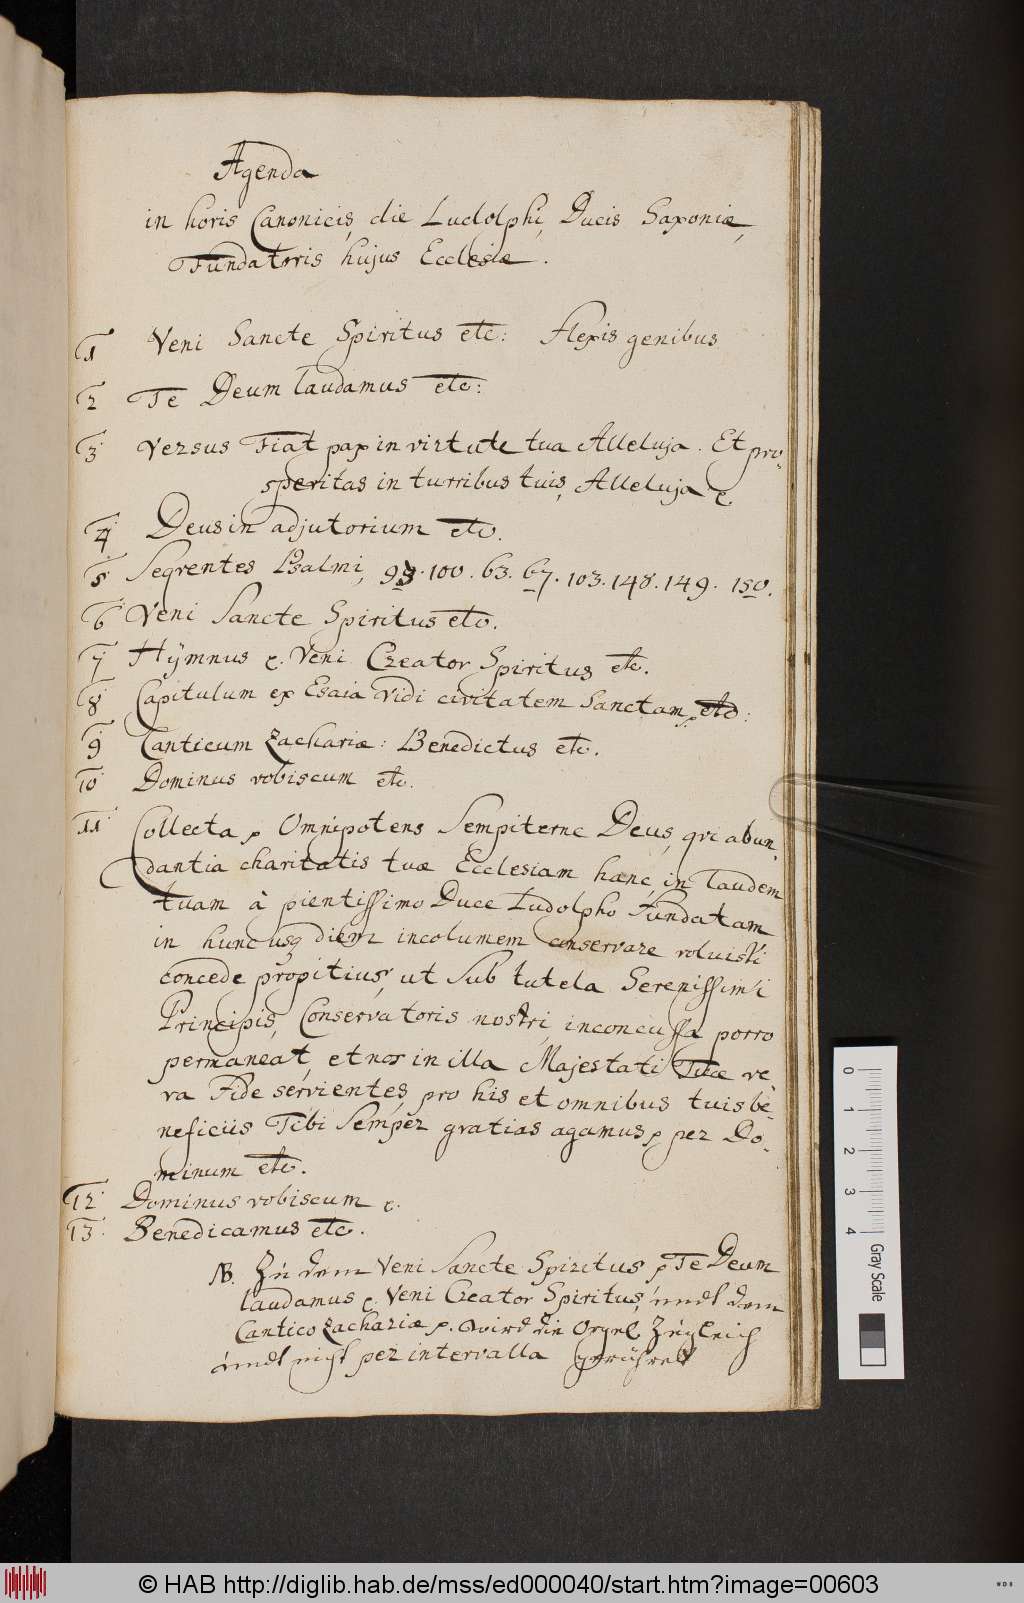 Agenda
in horis Canonicis, die Ludolphi, Ducis Saxoniæ,
Fundatoris hujus Ecclesiæ.
1 Veni Sancte Spiritus etc: flexis genibus
2 Te Deum laudamus etc:
3 Versus Fiat pax in virtute tua Alleluja. Et pro-
speritas in turribus tuis, Alleluja
4 Deus in adjutorium etc.
5 Seqventes Psalmi, 93. 100. 63. 67. 103. 148. 149. 150.
6 Veni Sancte Spiritus etc.
7 Hÿmnus Veni Creator Spiritus etc.
8 Capitulum ex Esaia Vidi civitatem Sanctam etc:
9 Canticum Zachariæ: Benedictus etc.
10 Dominus vobiscum etc.
11 Collecta Omnipotens Sempiterne Deus, qvi abun-
dantia charitatis tuæ Ecclesiam hanc, in laudem
tuam à pientissimo Duce Ludolpho fundatam
in hunc usq diem incolumem conservare voluisti
concede propitius, ut sub tutela Serenissimi
Principis, Conservatoris nostri, inconcussa porro
permaneat, et nos in illa Majestati Tuæ ve-
ra Fide servientes, pro his et omnibus tuis be-
neficiis Tibi Semper gratias agamus per Do-
minum etc.
12 Dominus vobiscum
13 Benedicamus etc.
NB. Zu dem Veni Sancte Spiritus Te Deum
laudamus Veni Creator Spiritus, undt dem
Cantico Zachariæ wird die Orgel Zugleich
undt nicht per intervalla gerühret
© HAB http://diglib.hab.de/mss/ed000040/start.htm?image=00603
0 1 2 3 4 Gray Scale